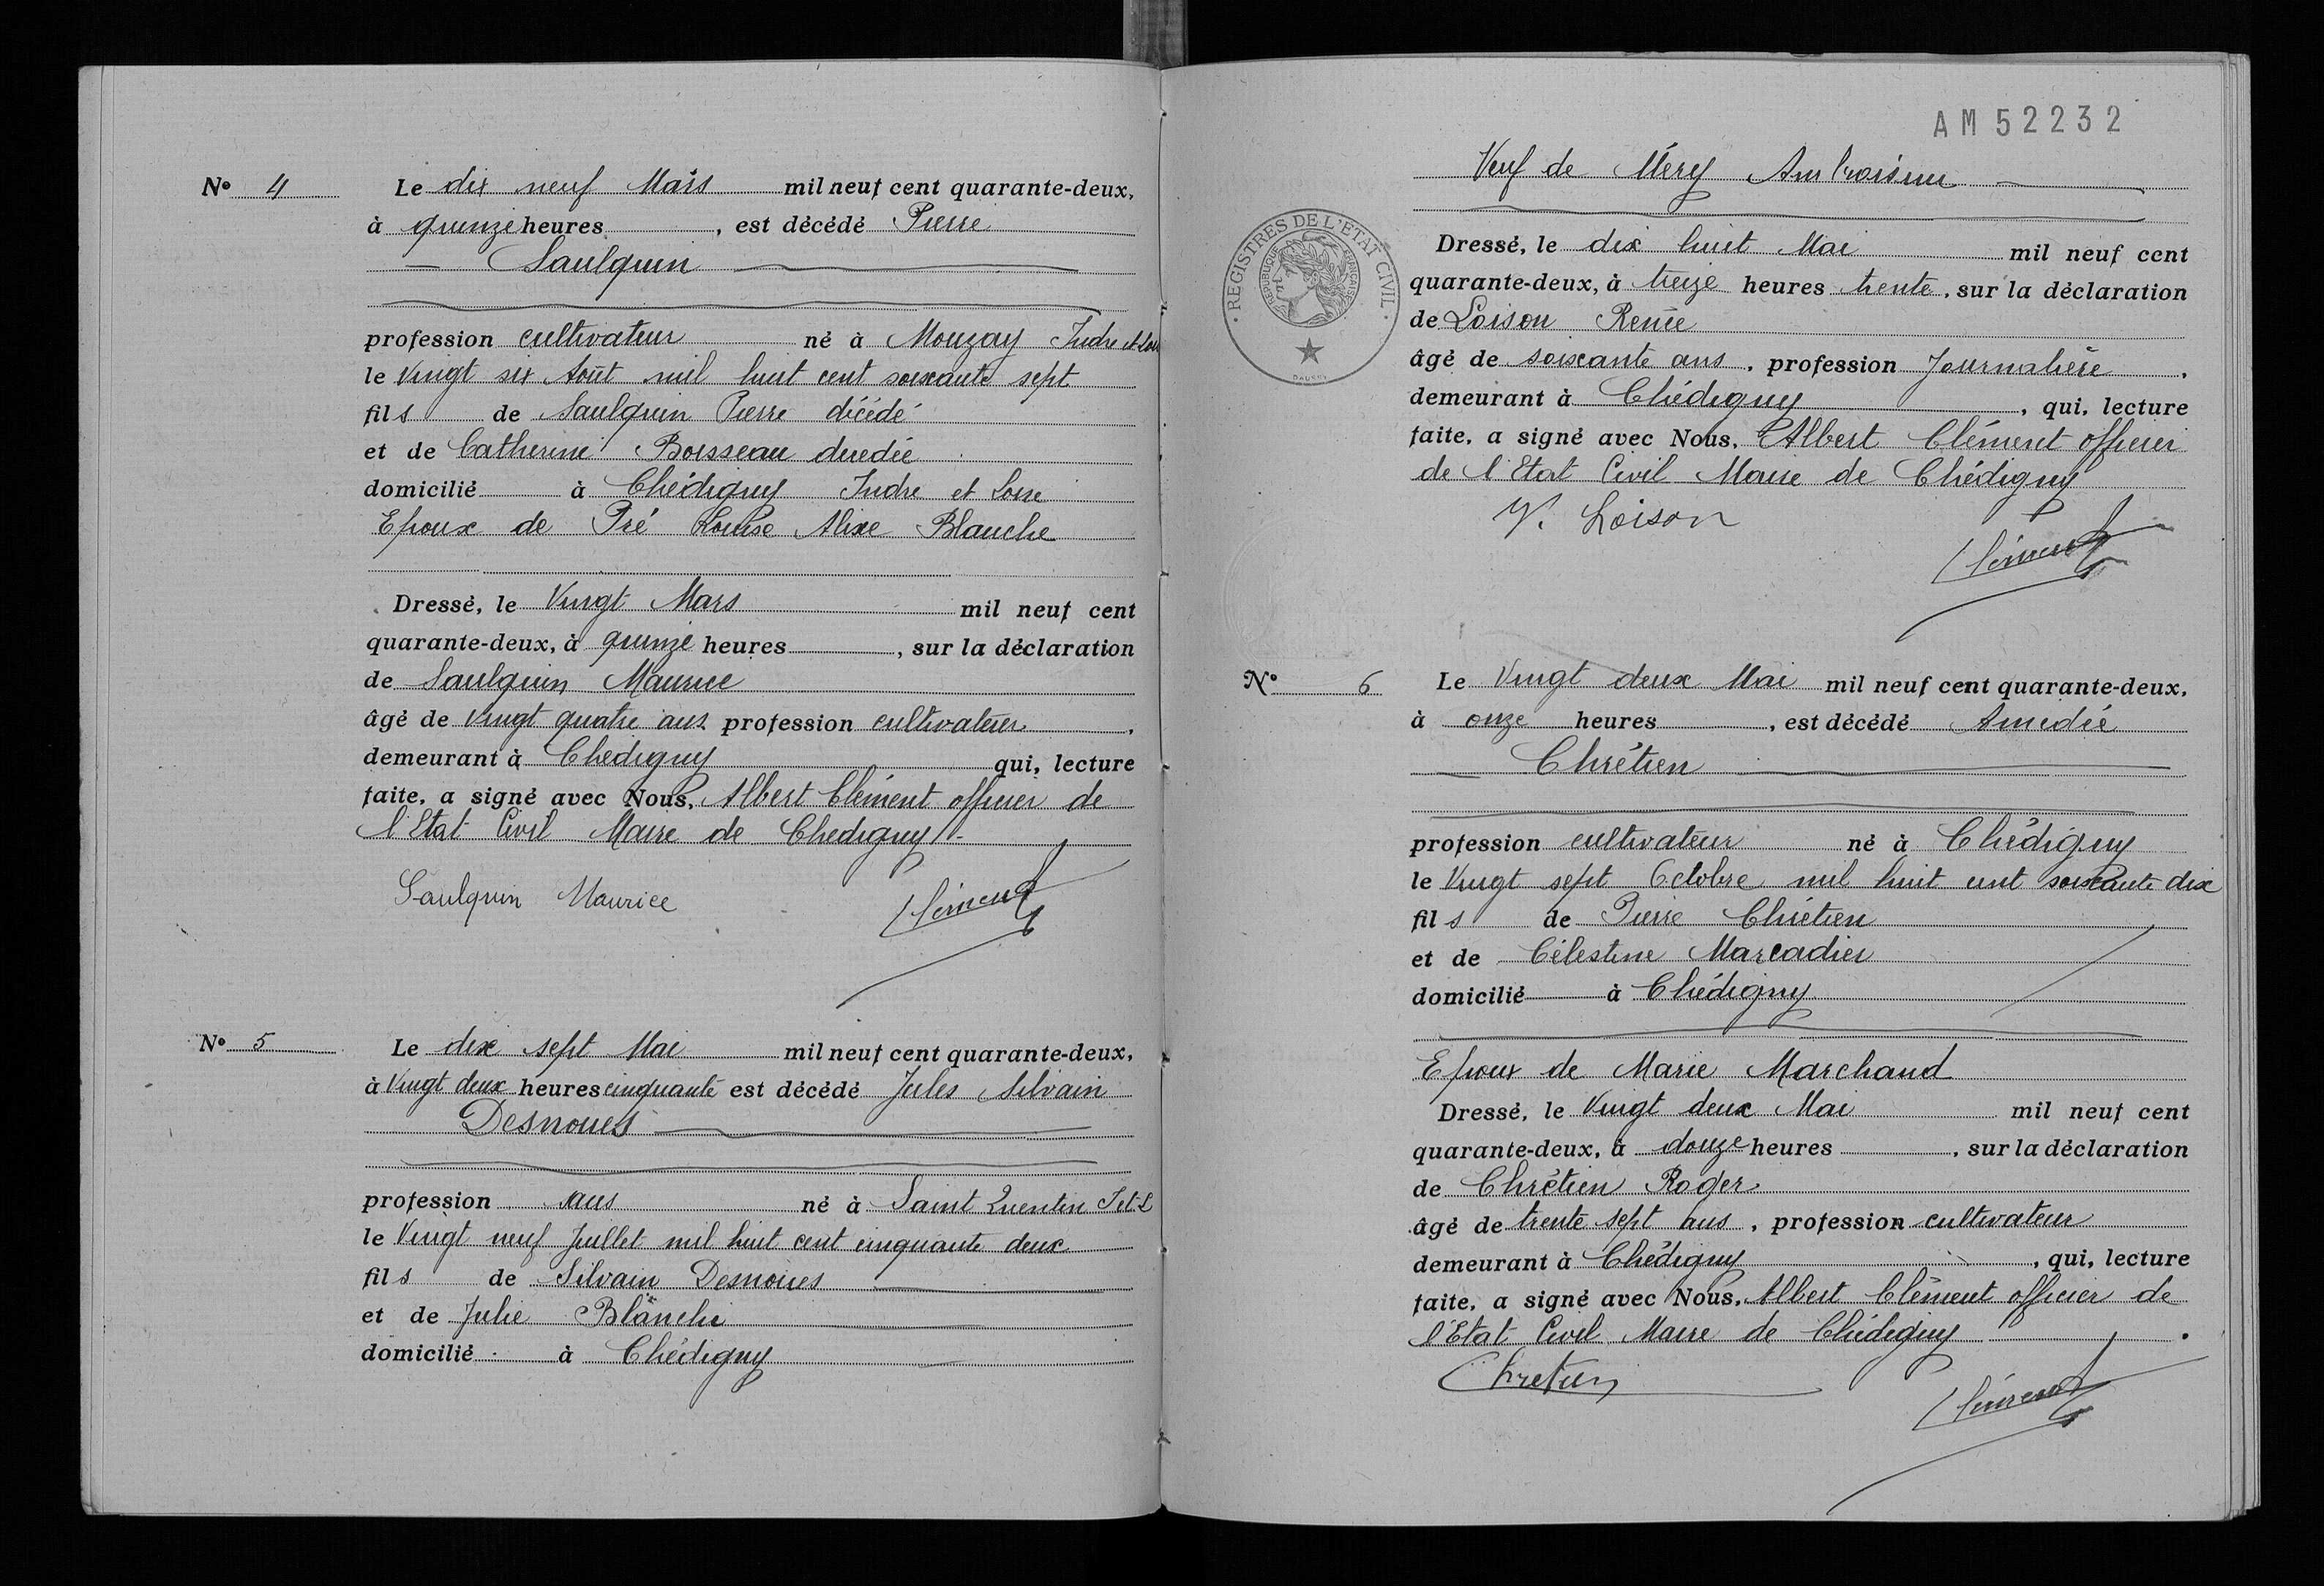 N° 4
Le dix neuf Mars mil neuf cent quarante-deux,
à quinze heures, est décédé Pierre
Saulquin
profession cultivateur né à Mouzay Indre et Loire
le Vingt six Août mil huit cent soixante sept
fils de Saulquin Pierre décédé
et de Catherine Boisseau decedée
domicilié à Chédigny Indre et Loire
Epoux de Pré Louise Alixe Blanche
Dressé, le Vingt Mars mil neuf cent
quarante-deux, à quinze heures, sur la déclaration
de Saulquin Maurice
âgé de Vingt quatre ans profession cultivateur,
demeurant à Chedigny qui, lecture
faite, a signé avec Nous, Albert Clément officier de
l'Etat Civil Maire de Chedigny.-
Saulquin Maurice Clément
N° 5
Le dix sept Mai mil neuf cent quarante-deux,
à Vingt deux heures cinquante est décédé Jules Silvain
Desnoues
profession sans né à Saint Quentin I et L
le Vingt neuf Juillet mil huit cent cinquante deux
fils de Silvain Desnoues
et de Julie Blanche
domicilié à Chédigny
AM52232
Veuf de Méry Ambroisine
REGISTRES DE L'ETAT CIVIL
REPUBLIQUE FRANÇAISE
Dressé, le dix huit Mai mil neuf cent
quarante-deux, à treize heures trente, sur la déclaration
de Loison Renée
âgé de soixante ans, profession Journalière,
demeurant à Chédigny, qui, lecture
faite, a signé avec Nous, Albert Clément officier
de l'Etat Civil Maire de Chédigny
V. Loison Clément
N° 6
Le Vingt deux Mai mil neuf cent quarante-deux,
à onze heures, est décédé Amédée
Chrétien
profession cultivateur né à Chédigny
le Vingt sept Octobre mil huit cent soixante dix
fils de Pierre Chrétien
et de Célestine Marcadier
domicilié à Chédigny
Epoux de Marie Marchand
Dressé, le Vingt deux Mai mil neuf cent
quarante-deux, à douze heures, sur la déclaration
de Chrétien Roger
âgé de trente sept ans, profession cultivateur
demeurant à Chédigny, qui, lecture
faite, a signé avec Nous, Albert Clément officier de
l'Etat Civil Maire de Chédigny.
Chretien Clément